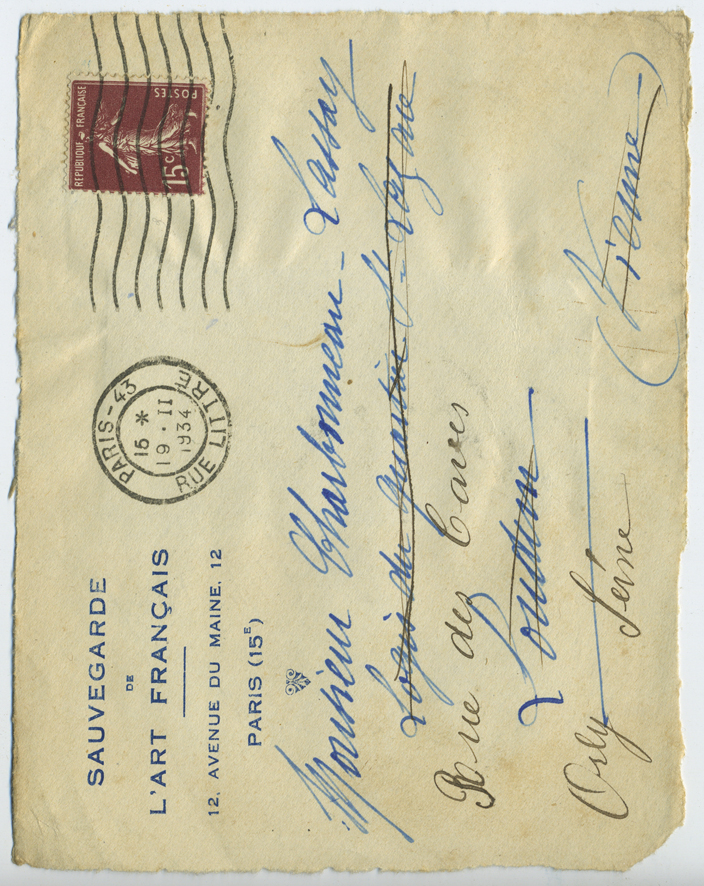 SAUVEGARDE
DE
L'ART FRANÇAIS
12, AVENUE DU MAINE, 12
PARIS (15E)
PARIS-43
15 *
19 · II
1934
RUE LITTRÉ
REPUBLIQUE FRANÇAISE
POSTES
15c
Monsieur Charbonneau-Lassay
Logis du Quentin St Lazare
Rue des Caves
Loudun
Orly Seine
(Vienne)